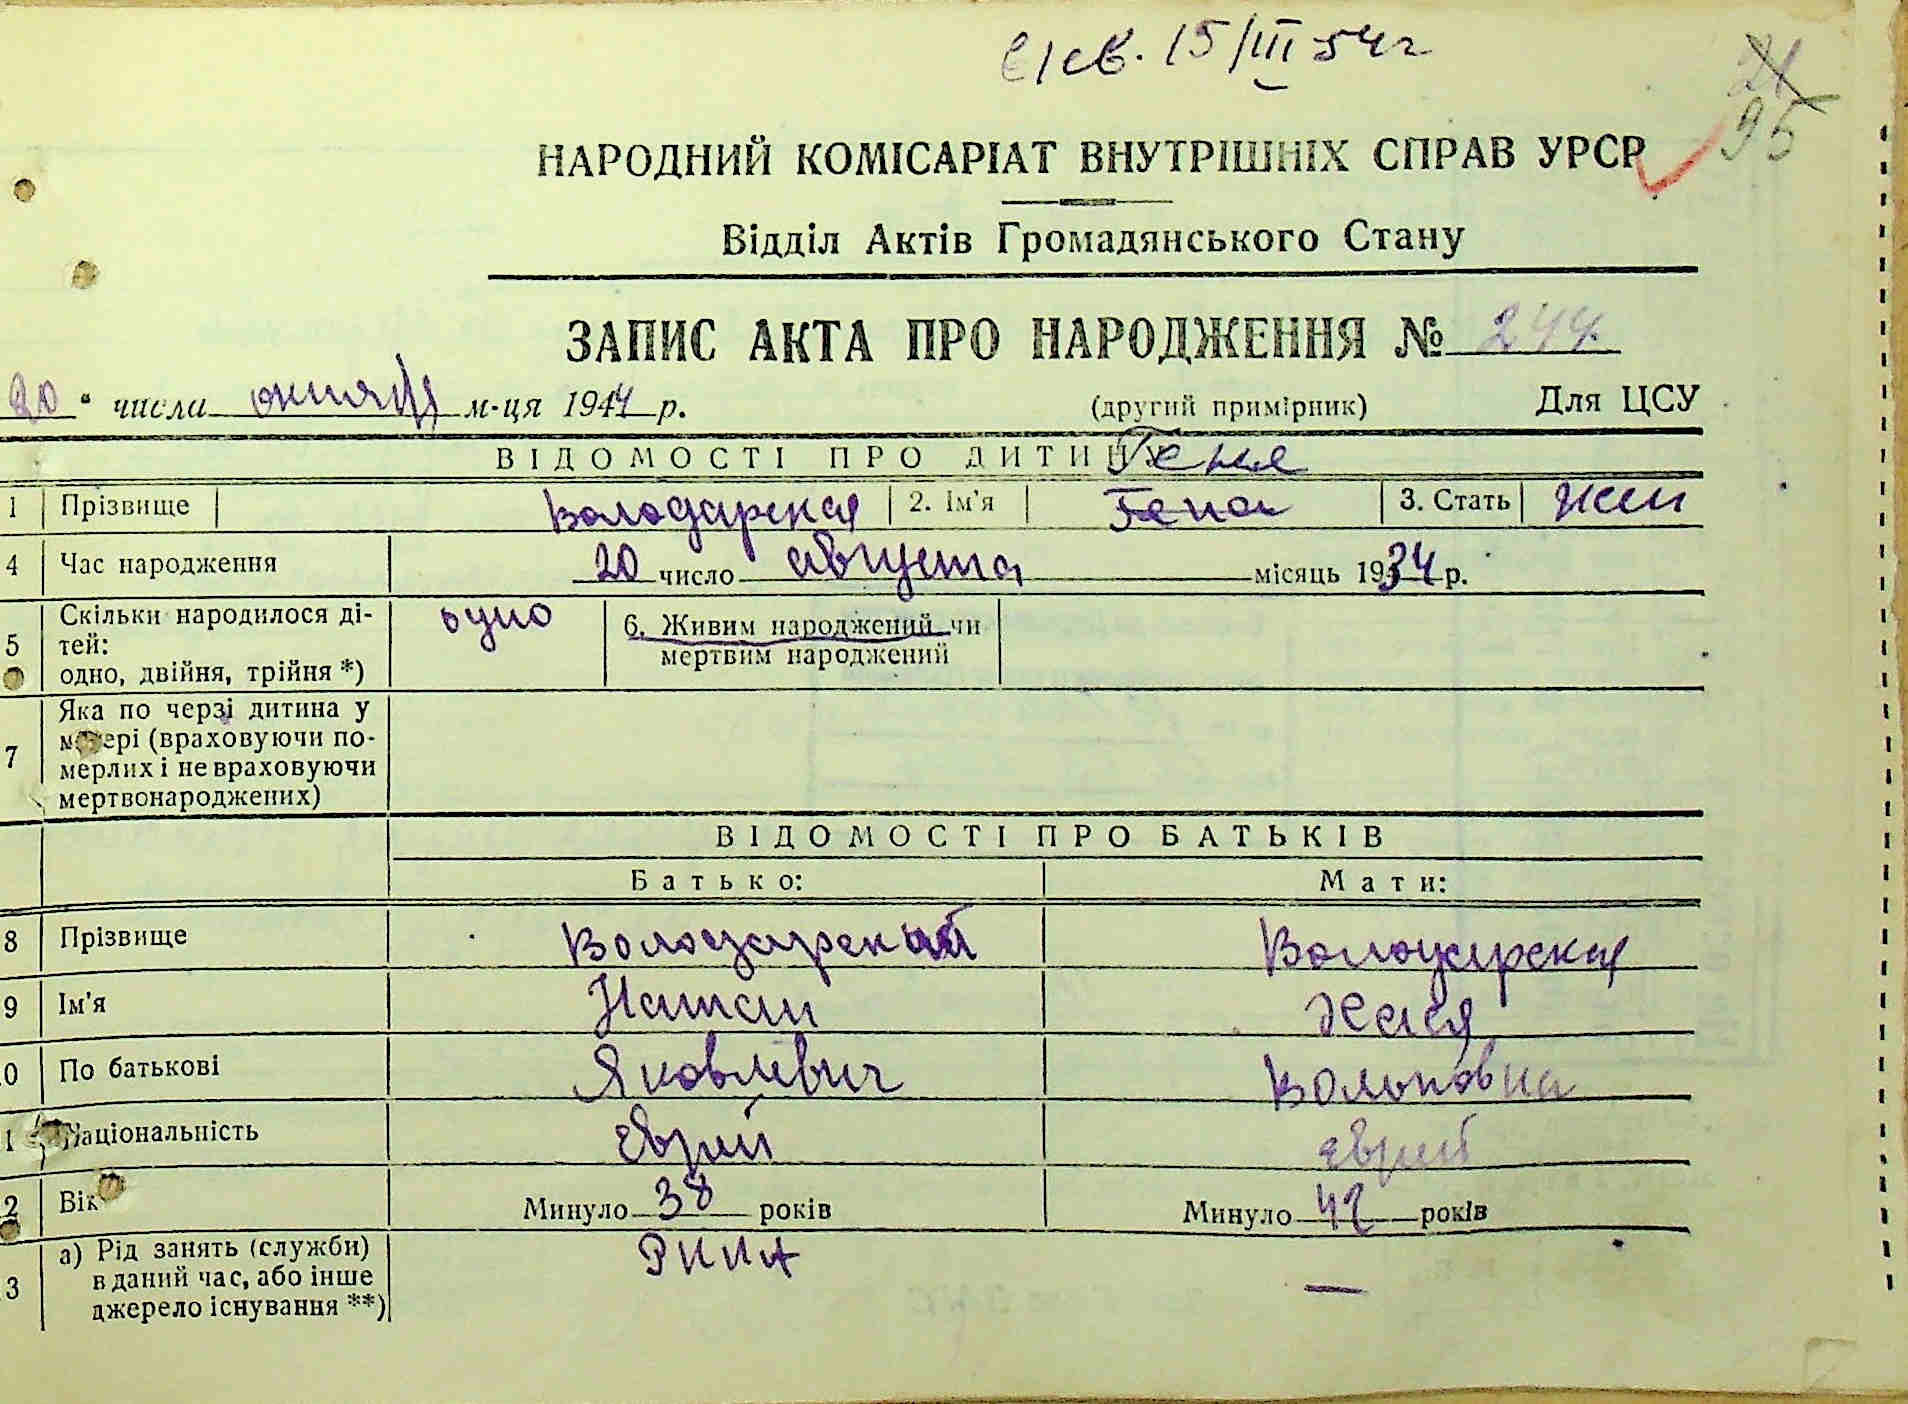 св. 15/III 54 г
21
95
НАРОДНИЙ КОМІСАРІАТ ВНУТРІШНІХ СПРАВ УРСР
Відділ Актів Громадянського Стану
ЗАПИС АКТА ПРО НАРОДЖЕННЯ № 244
20 " числа октября м-ця 1944 р. (другий примірник) Для ЦСУ
ВІДОМОСТІ ПРО ДИТИНУ Геня
1 Прізвище Володарская 2. Ім'я Гена 3. Стать жен
4 Час народження 20 число августа місяць 1934 р.
5 Скільки народилося ді-
тей:
одно, двійня, трійня *) одно 6. Живим народжений чи
мертвим народжений
7 Яка по черзі дитина у
матері (враховуючи по-
мерлих і не враховуючи
мертвонароджених)
ВІДОМОСТІ ПРО БАТЬКІВ
Батько: Мати:
8 Прізвище Володарский Володарская
9 Ім'я Натан Хая
0 По батькові Яковлевич Вольповна
1 Національність Еврей еврей
2 Вік Минуло 38 років Минуло 42 років
3 а) Рід занять (служби)
в даний час, або інше
джерело існування **) РККА —